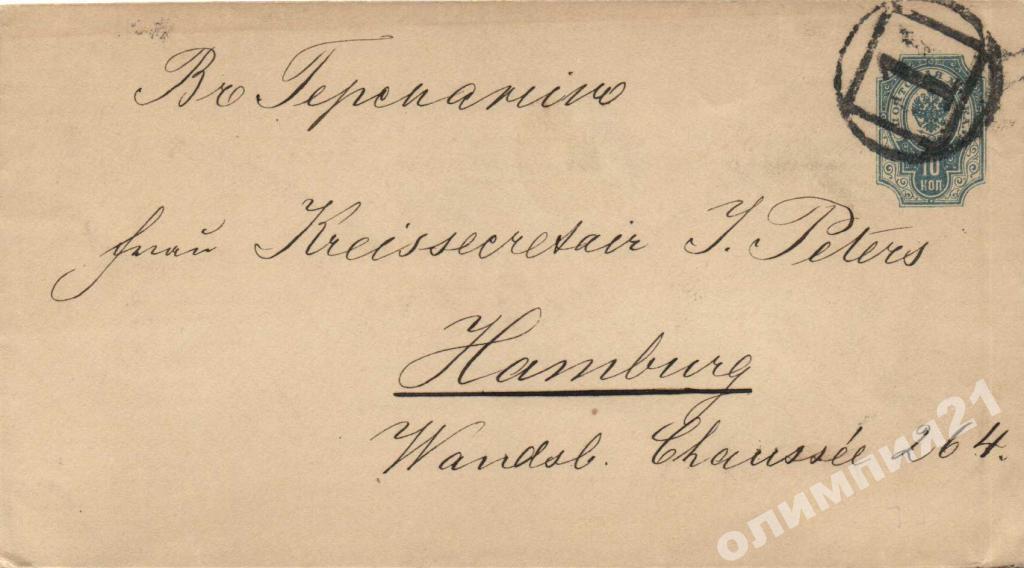 Въ Германію
Frau Kreissecretair J. Peters
Hamburg
Wandsb. Chaussée 264.
10
КОП
олимпия21